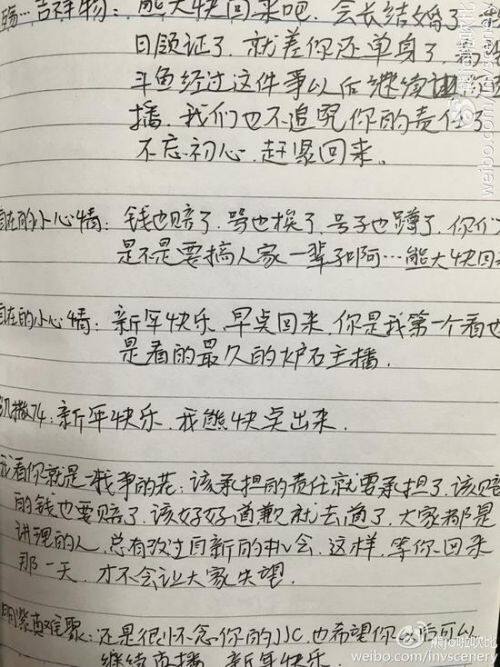 吉祥物：熊大快回来吧．会长结婚了．
日领证了．就差你还单身了．
斗鱼经过这件事以后继续
播．我们也不追究你的责任了
不忘初心，赶紧回来．
自在的小心情：钱也赔了．骂也挨了．号子也蹲了．你们
是不是要搞人家一辈子啊…熊大快回
自在的小心情：新年快乐．早点回来．你是我第一个看也
是看的最久的炉石主播．
撒74：新年快乐．我熊快点出来．
我看你就是一战争的苍：该承担的责任就要承担了．该赔
的钱也要赔了．该好好道歉就去道了．大家都是
讲理的人．总有改过自新的机会．这样．等你回来
那一天．才不会让大家失望．
明紫真难聚：还是很怀念你的小C．也希望你以后可以
继续直播．新年快乐．
weibo.com/invscenery